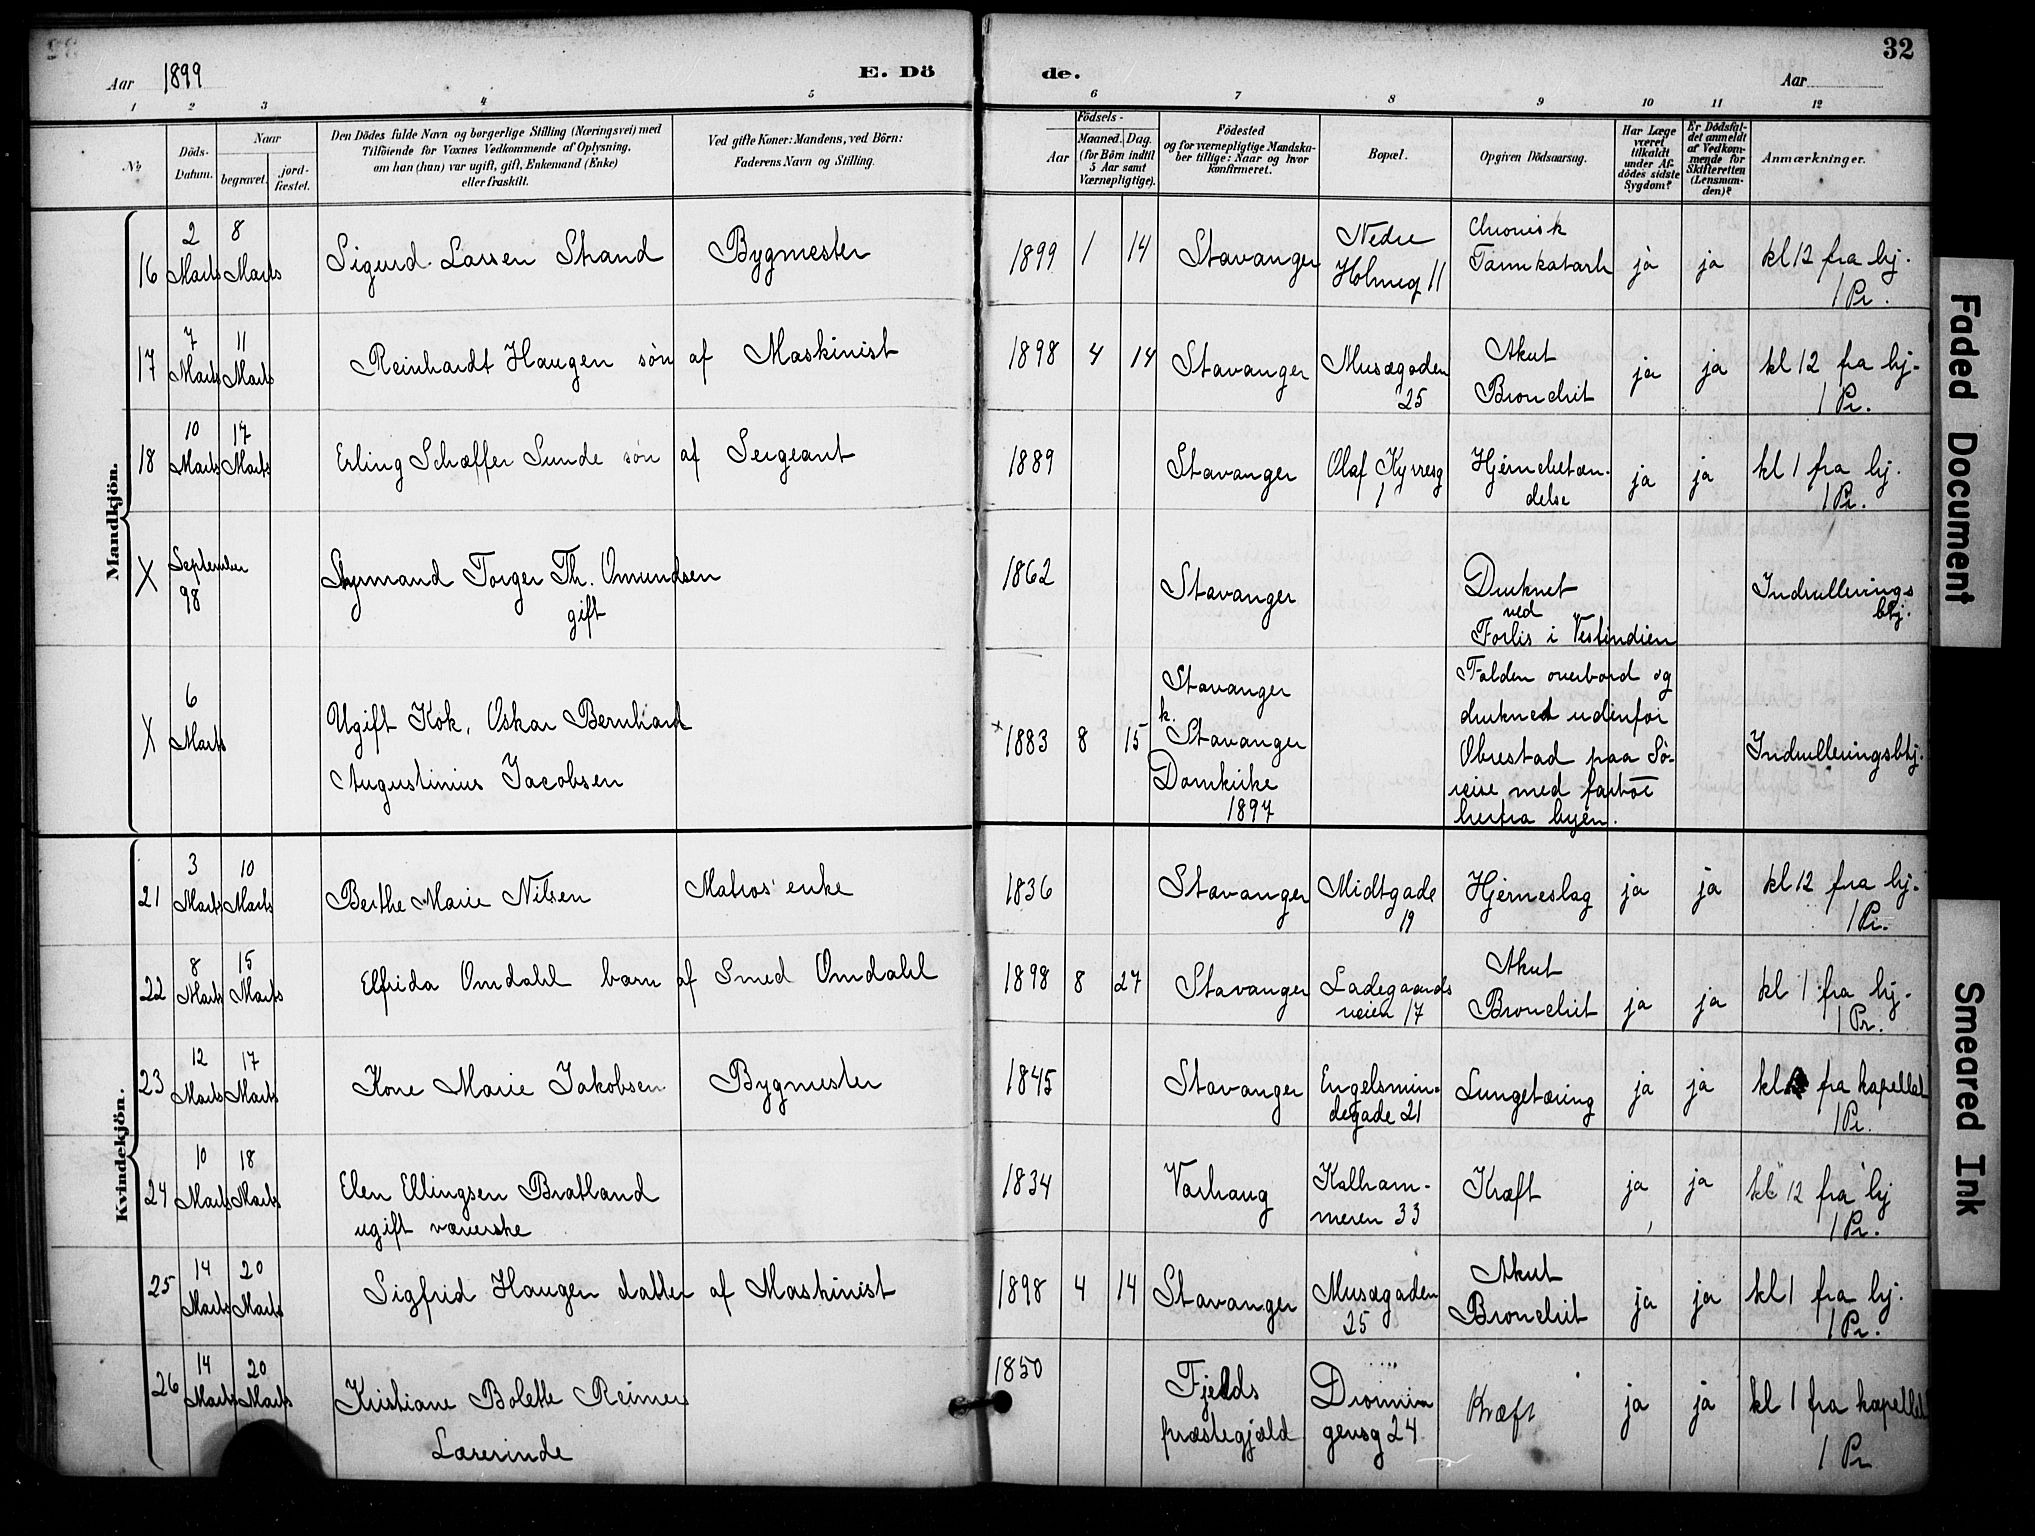 32
Aar 1899
E. Dö
de.
Aar
1 2 3 4 5 6 7 8 9 10 11 12
No
Döds-
Datum.
Naar
begravet.
jord-
fæstet.
Den Dödes fulde Navn og borgerlige Stilling (Næringsvei) med
Tilföiende for Voxnes Vedkommende af Oplysning,
om han (hun) var ugift, gift, Enkemand (Enke)
eller fraskilt.
Ved gifte Koner: Mandens, ved Börn:
Faderens Navn og Stilling.
Födsels-
Aar
Maaned.
Dag.
(for Börn indtil
5 Aar samt
Værnepligtige).
Födested
og for værnepligtige Mandska-
ber tillige: Naar og hvor
konfirmeret.
Bopæl.
Opgiven Dödsaarsag.
Har Læge
været
tilkaldt
under Af-
dödes sidste
Sygdom?
Er Dödsfal-
det anmeldt
af Vedkom-
mende for
Skifteretten
(Lensman-
den)?
Anmærkninger.
Mandkjön.
16
2
Marts
8
Marts
Sigurd Larsen Strand
Bygmester
1899 1 14
Stavanger
Nedre
Holmeg 11
Chronisk
Tarmkatarh
ja ja
kl 12 fra hj.
1 Pr.
17
7
Marts
11
Marts
Reinhardt Haugen søn af Maskinist
1898 4 14
Stavanger
Musægaden
25
Akut
Bronchit
ja ja
kl 12 fra hj.
1 Pr.
18
10
Marts
17
Marts
Erling Schæffer Sunde søn af Sergeant
1889
Stavanger
Olaf Kyrresg
1
Hjernebetæn-
delse
ja ja
kl 1 fra hj.
1 Pr.
X
September
98
Styrmand Torger Th. Omundsen
gift
1862
Stavanger
Druknet
ved
Forlis i Vestindien
Indrullerings
bkj.
X
6
Marts
Ugift Kok, Oskar Bernhard
Augustinius Jacobsen
x 1883 8 15
Stavanger
k.
Stavanger
Domkirke
1897
Falden overbord og
druknet udenfor
Obrestad paa Sø-
reise med fartøi
herfra byen.
Indrulleringsbkj.
Kvindekjön.
21
3
Marts
10
Marts
Berthe Marie Nilsen
Matros' enke
1836
Stavanger
Midtgade
19
Hjerneslag
ja ja
kl 12 fra hj.
1 Pr.
22
8
Marts
15
Marts
Elfrida Omdahl barn af Smed Omdahl
1898 8 27
Stavanger
Ladegaards
veien 17
Akut
Bronchit
ja ja
kl 1 fra hj.
1 Pr.
23
12
Marts
17
Marts
Kone Marie Jakobsen
Bygmester
1845
Stavanger
Engelsmin-
degade 21
Lungetæring
ja ja
kl fra kapellet
1 Pr.
24
10
Marts
18
Marts
Elen Ellingsen Bratland
ugift væverske
1834
Varhaug
Kalham-
meren 33
Kræft
ja ja
kl 12 fra hj
1 Pr.
25
14
Marts
20
Marts
Sigfrid Haugen datter af Maskinist
1898 4 14
Stavanger
Musægaden
25
Akut
Bronchit
ja ja
kl 1 fra hj.
1 Pr.
26
14
Marts
20
Marts
Kristiane Bolette Reimers
Lærerinde
1850
Fjelds
præstegjæld
Dronnin
gensg 24
Kræft
ja ja
kl 1 fra kapellet
1 Pr
Faded Document
Smeared Ink